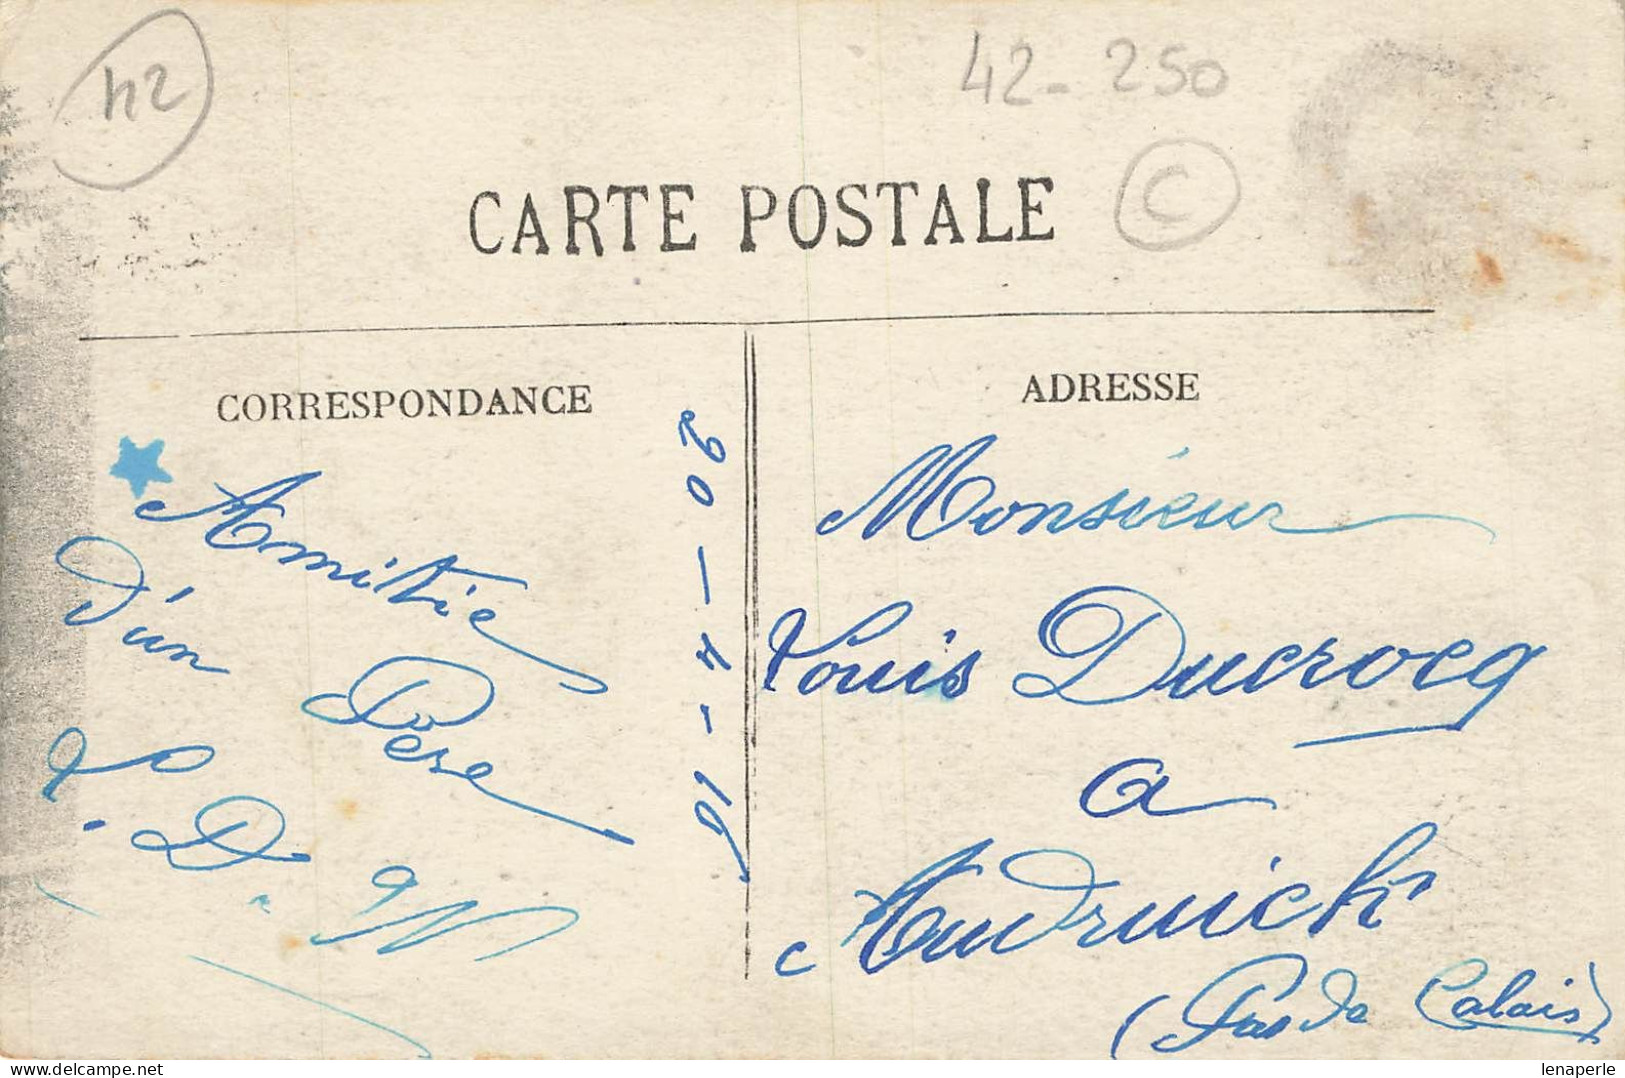 42
42 - 250
C
CARTE POSTALE
CORRESPONDANCE
Amitié
d'un
Père
L. D.
20 - 4 - 16
ADRESSE
Monsieur
Louis Ducrocq
a
Audruick
(Pas de Calais)
lenaperle